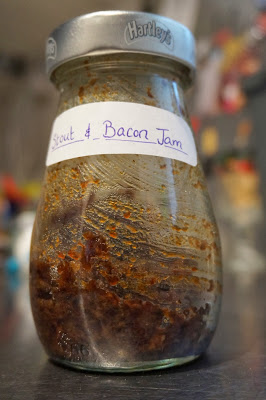 Hartley's
Stout & Bacon Jam